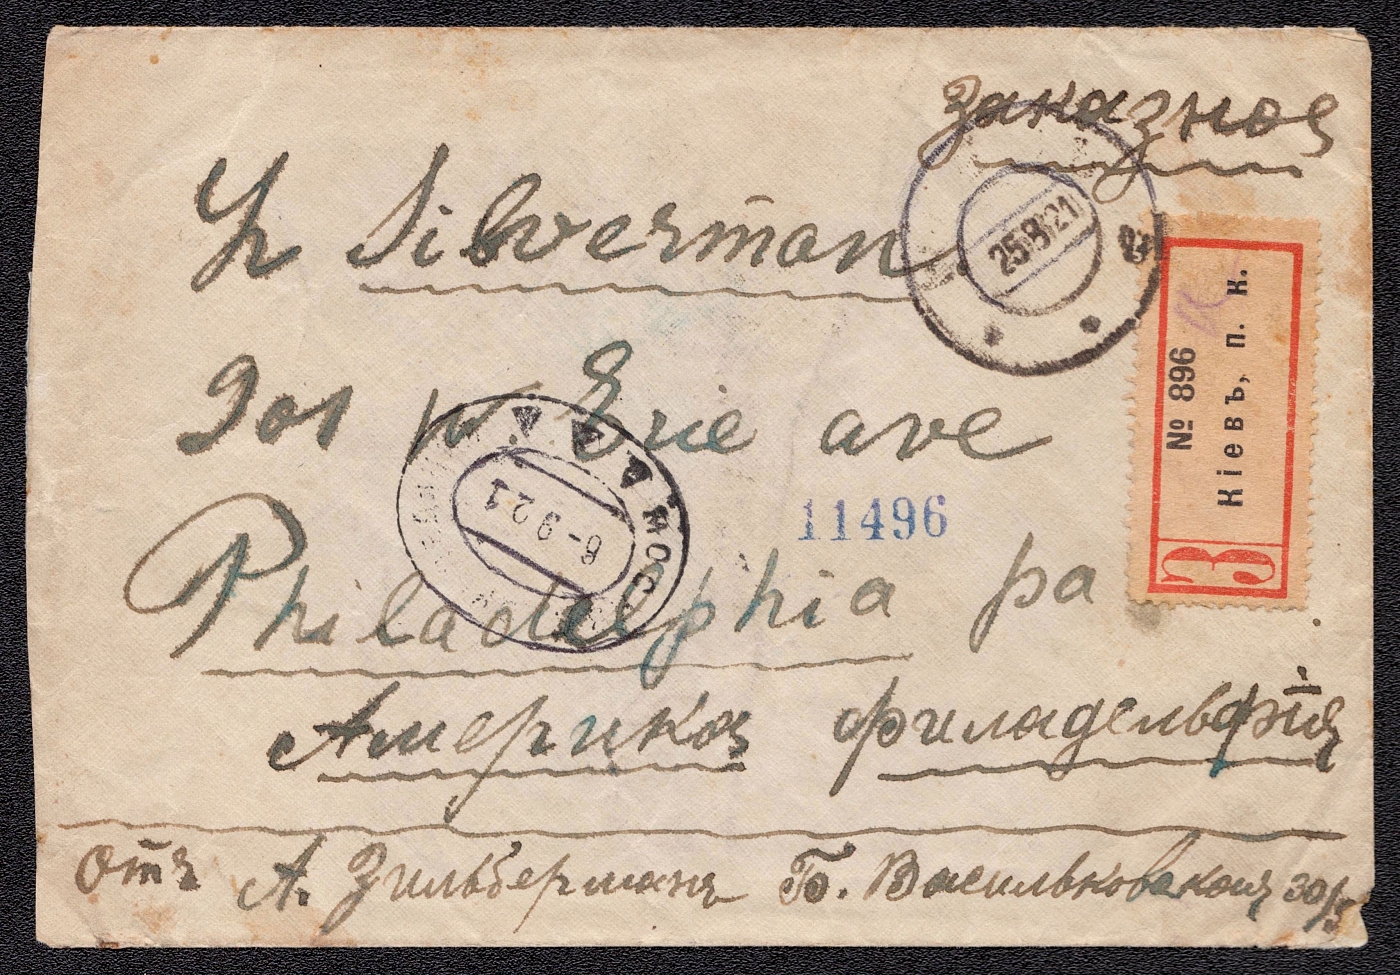 Заказное
Silverman
25.8.21
№ 896
Кіевъ, п. к.
З
W. Erie ave
6-9 21
МОС
11496
Philadelphia pa
Америка Филадельфія
Отъ А. Зильберманъ Б. Васильковская 30/